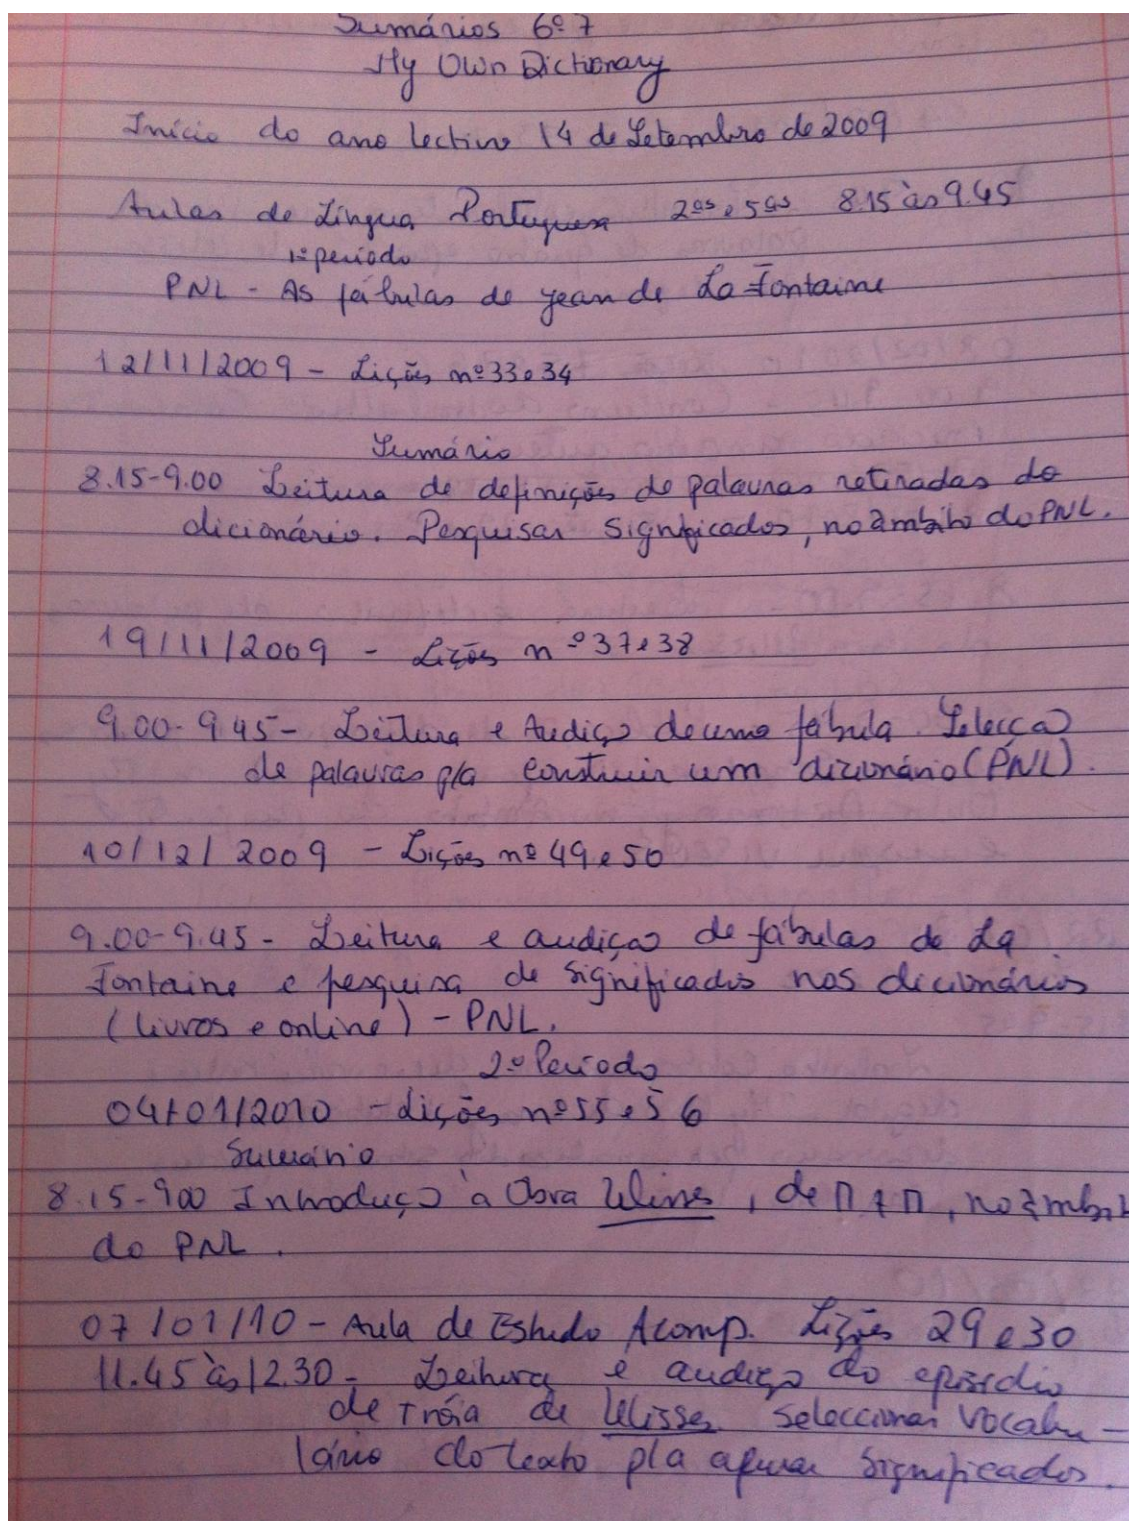 Sumários 6º 7
My Own Dictionary
Início do ano lectivo 14 de Setembro de 2009
Aulas de Língua Portuguesa 2ªs e 5ªs 8.15 às 9.45
1º período
PNL - As fábulas de Jean de La Fontaine
12/11/2009 - Lições nº 33 e 34
Sumário
8.15-9.00 Leitura de definições de palavras retiradas do
dicionário. Pesquisar significados, no âmbito do PNL.
19/11/2009 - Lições nº 37 e 38
9.00-9.45 - Leitura e Audição de uma fábula. Selecção
de palavras p/a construir um dicionário (PNL).
10/12/2009 - Lições nº 49 e 50
9.00-9.45 - Leitura e audição de fábulas de La
Fontaine e pesquisa de significados nos dicionários
(livros e online) - PNL.
2º Período
04/01/2010 - Lições nº 55 e 56
Sumário
8.15-9.00 Introdução à Obra Ulisses, de, no âmbito
do PNL.
07/01/10 - Aula de Estudo Acomp. Lições 29 e 30
11.45 às 12.30 - Leitura e audição do episódio
de Tróia de Ulisses. Seleccionar vocabu-
lário do texto p/a apurar significados.